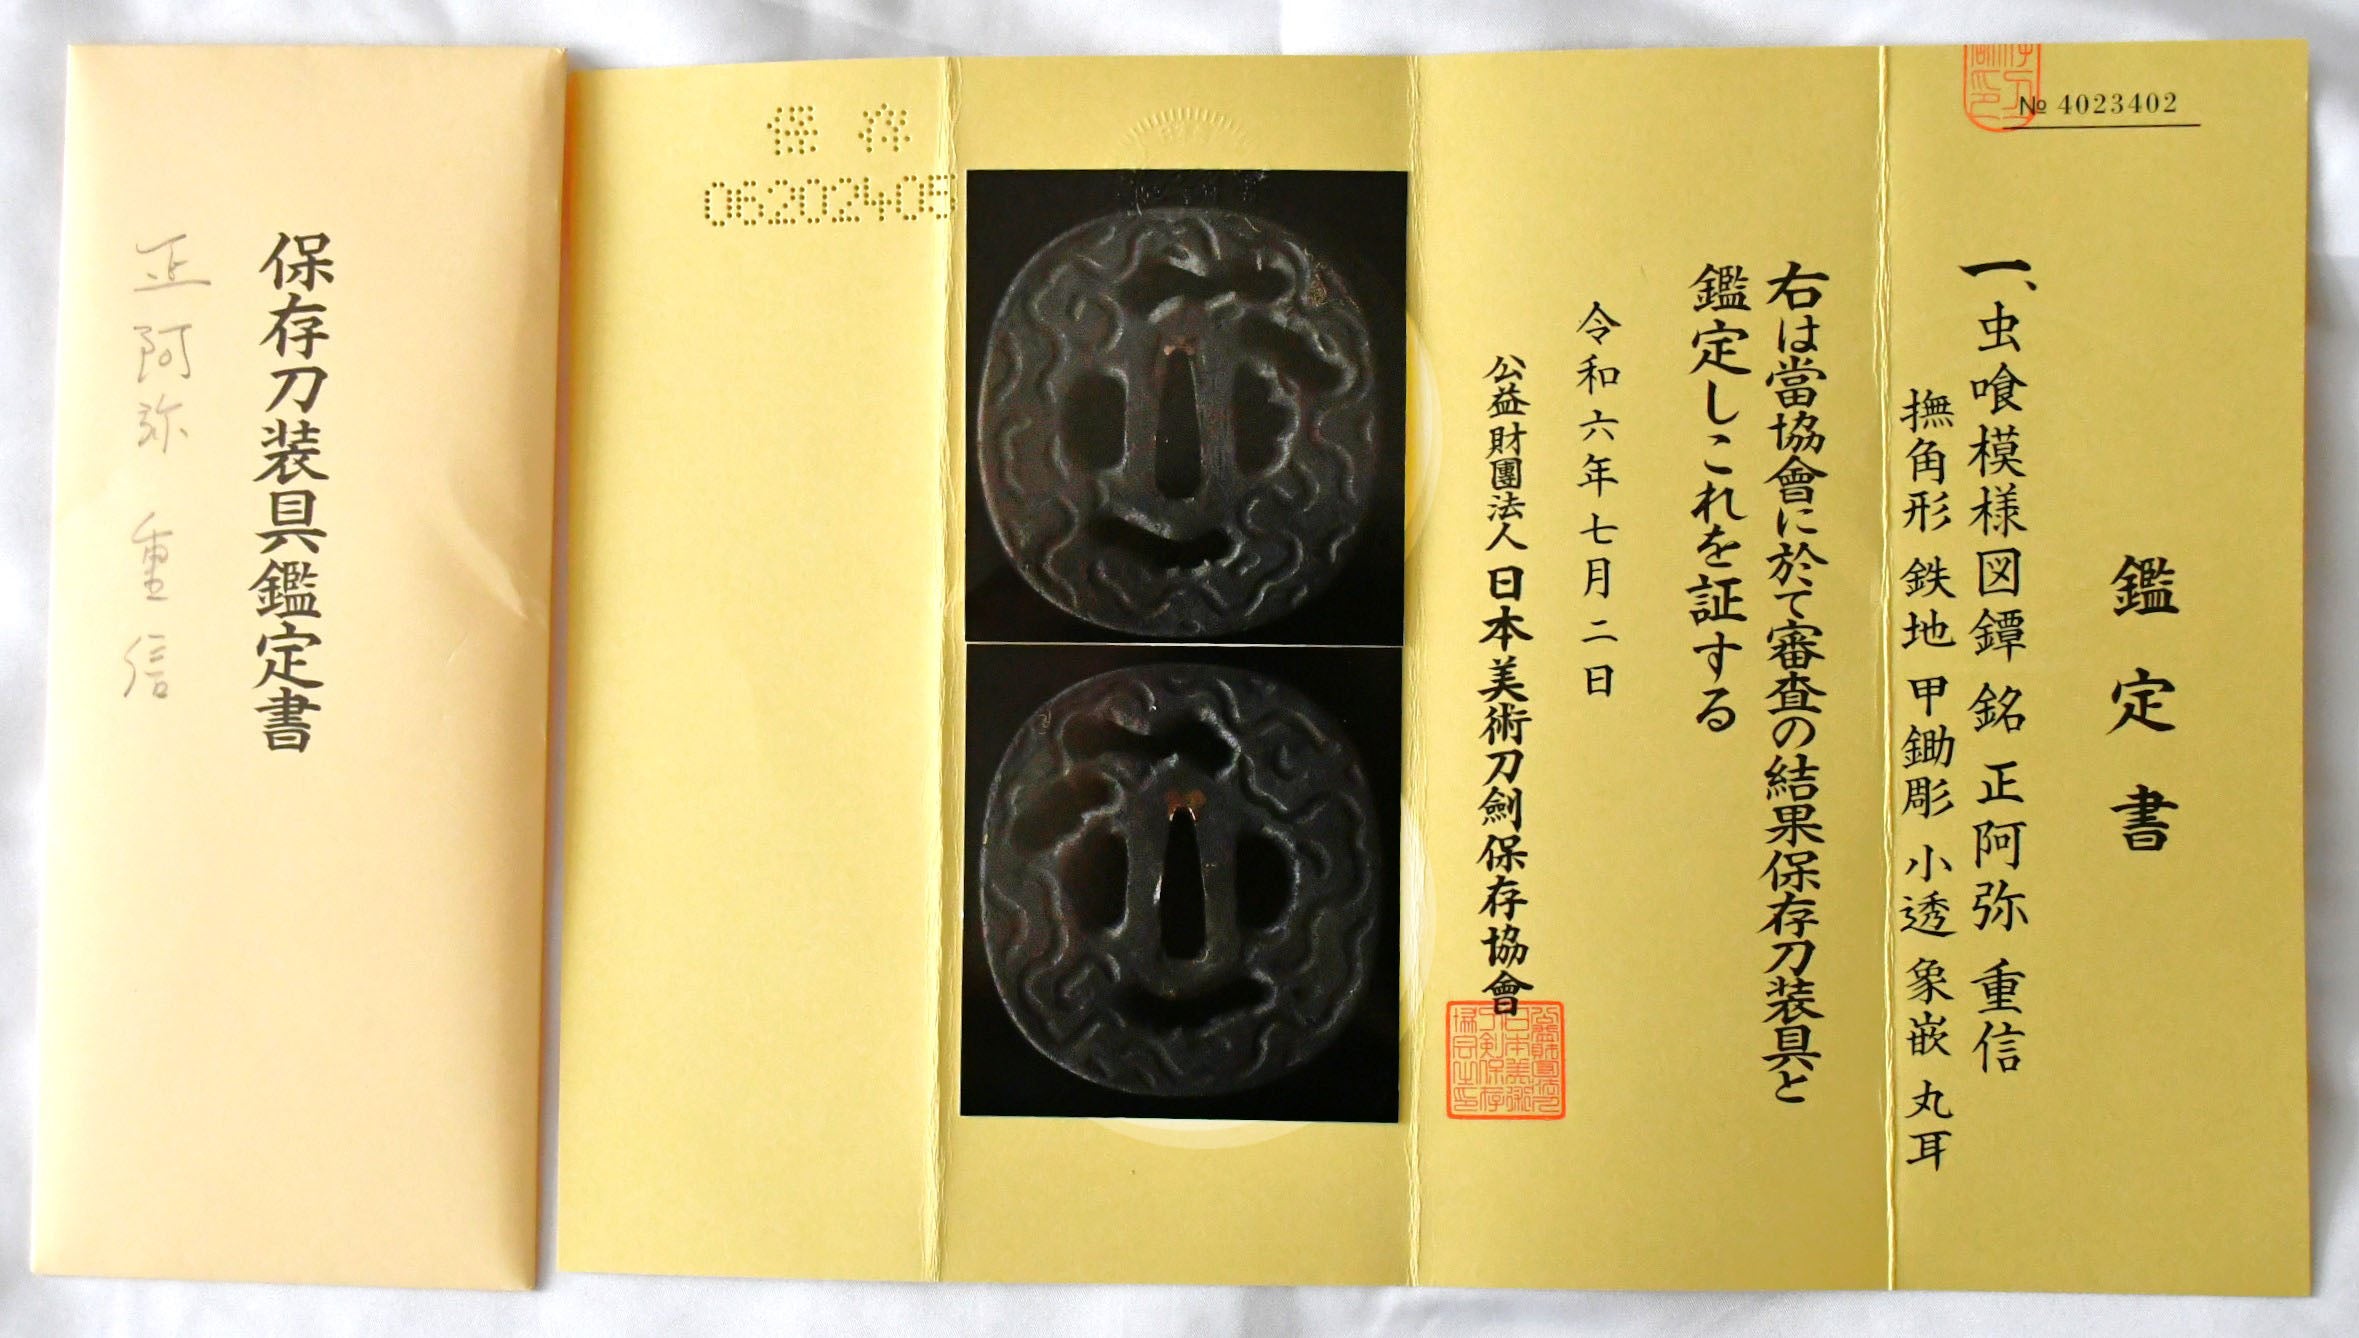 保存刀装具鑑定書
正阿弥 重信
№ 4023402
鑑定書
一、虫喰模様図鐔 銘 正阿弥 重信
撫角形 鉄地 甲鋤彫 小透 象嵌 丸耳
右は當協會に於て審査の結果保存刀装具と
鑑定しこれを証する
令和六年七月二日
公益財團法人 日本美術刀劍保存協會
保存
06202405